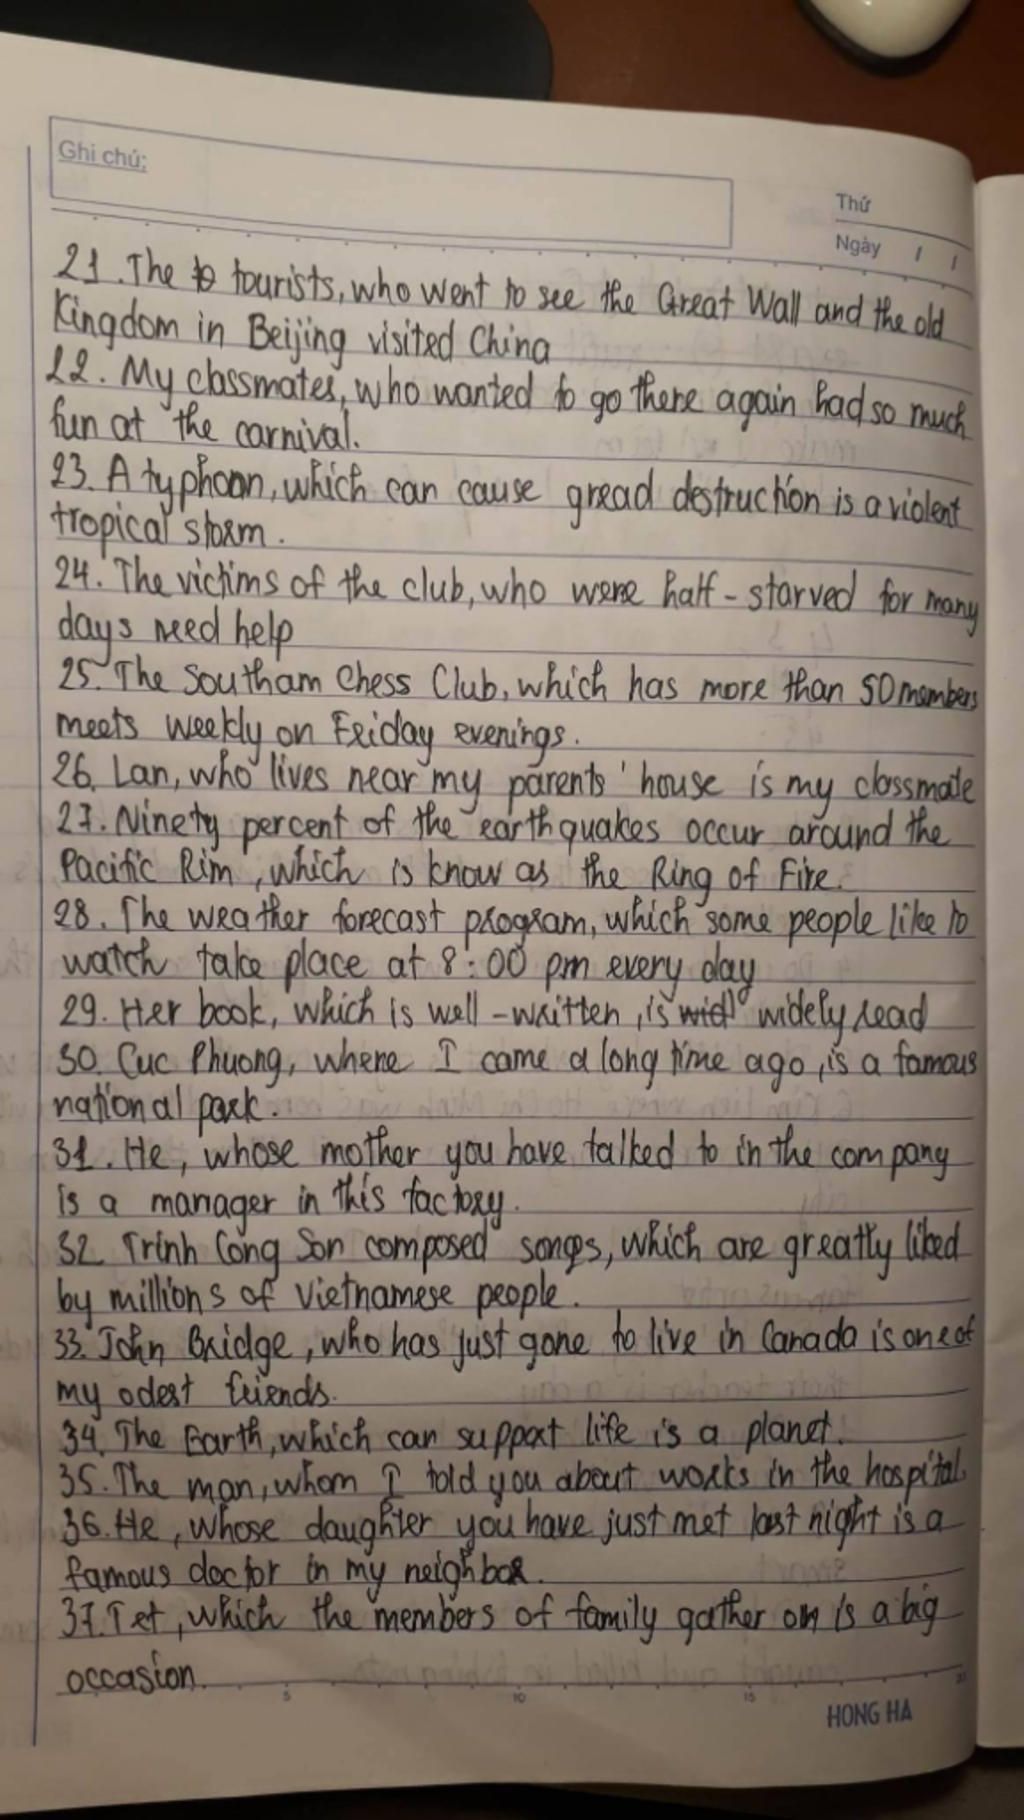 Ghi chú:
Thứ
Ngày / /
21. The tourists, who went to see the Great Wall and the old
Kingdom in Beijing visited China
22. My classmates, who wanted to go there again had so much
fun at the carnival.
23. A typhoon, which can cause gread destruction is a violent
tropical storm.
24. The victims of the club, who were half-starved for many
days need help
25. The Southam Chess Club, which has more than 50 members
meets weekly on Friday evenings.
26. Lan, who lives near my parents' house is my classmate
27. Ninety percent of the earthquakes occur around the
Pacific Rim, which is know as the Ring of Fire.
28. The weather forecast program, which some people like to
watch take place at 8:00 pm every day
29. Her book, which is well-written, is wid widely read
30. Cuc Phuong, where I came a long time ago, is a famous
national park.
31. He, whose mother you have talked to in the company
is a manager in this factory.
32. Trinh Cong Son composed songs, which are greatly liked
by millions of Vietnamese people.
33. John Bridge, who has just gone to live in Canada is one of
my odest friends.
34. The Earth, which can support life is a planet.
35. The man, whom I told you about works in the hospital.
36. He, whose daughter you have just met last night is a
famous doctor in my neighbor.
37. Tet, which the members of family gather on is a big
occasion.
5 10 15 20
HONG HA